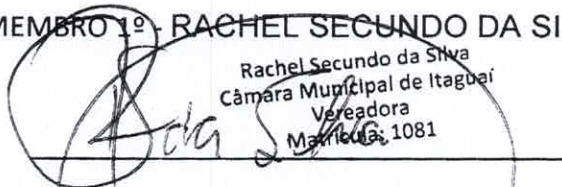 MEMBRO 1º - RACHEL SECUNDO DA SI
Rachel Secundo da Silva
Câmara Municipal de Itaguaí
Vereadora
Matrícula: 1081
da Silva